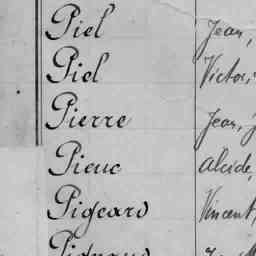 Piel Jean,
Piel Victor,
Pierre Jean, J
Pieuc Alcide,
Pigeard Vincent,